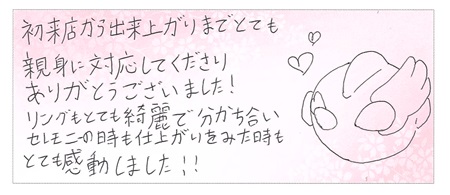 初来店から出来上がりまでとても
親身に対応してくださり
ありがとうございました!
リングもとても綺麗で分かち合い
セレモニーの日時も仕上がりをみた時も
とても感動しました!!